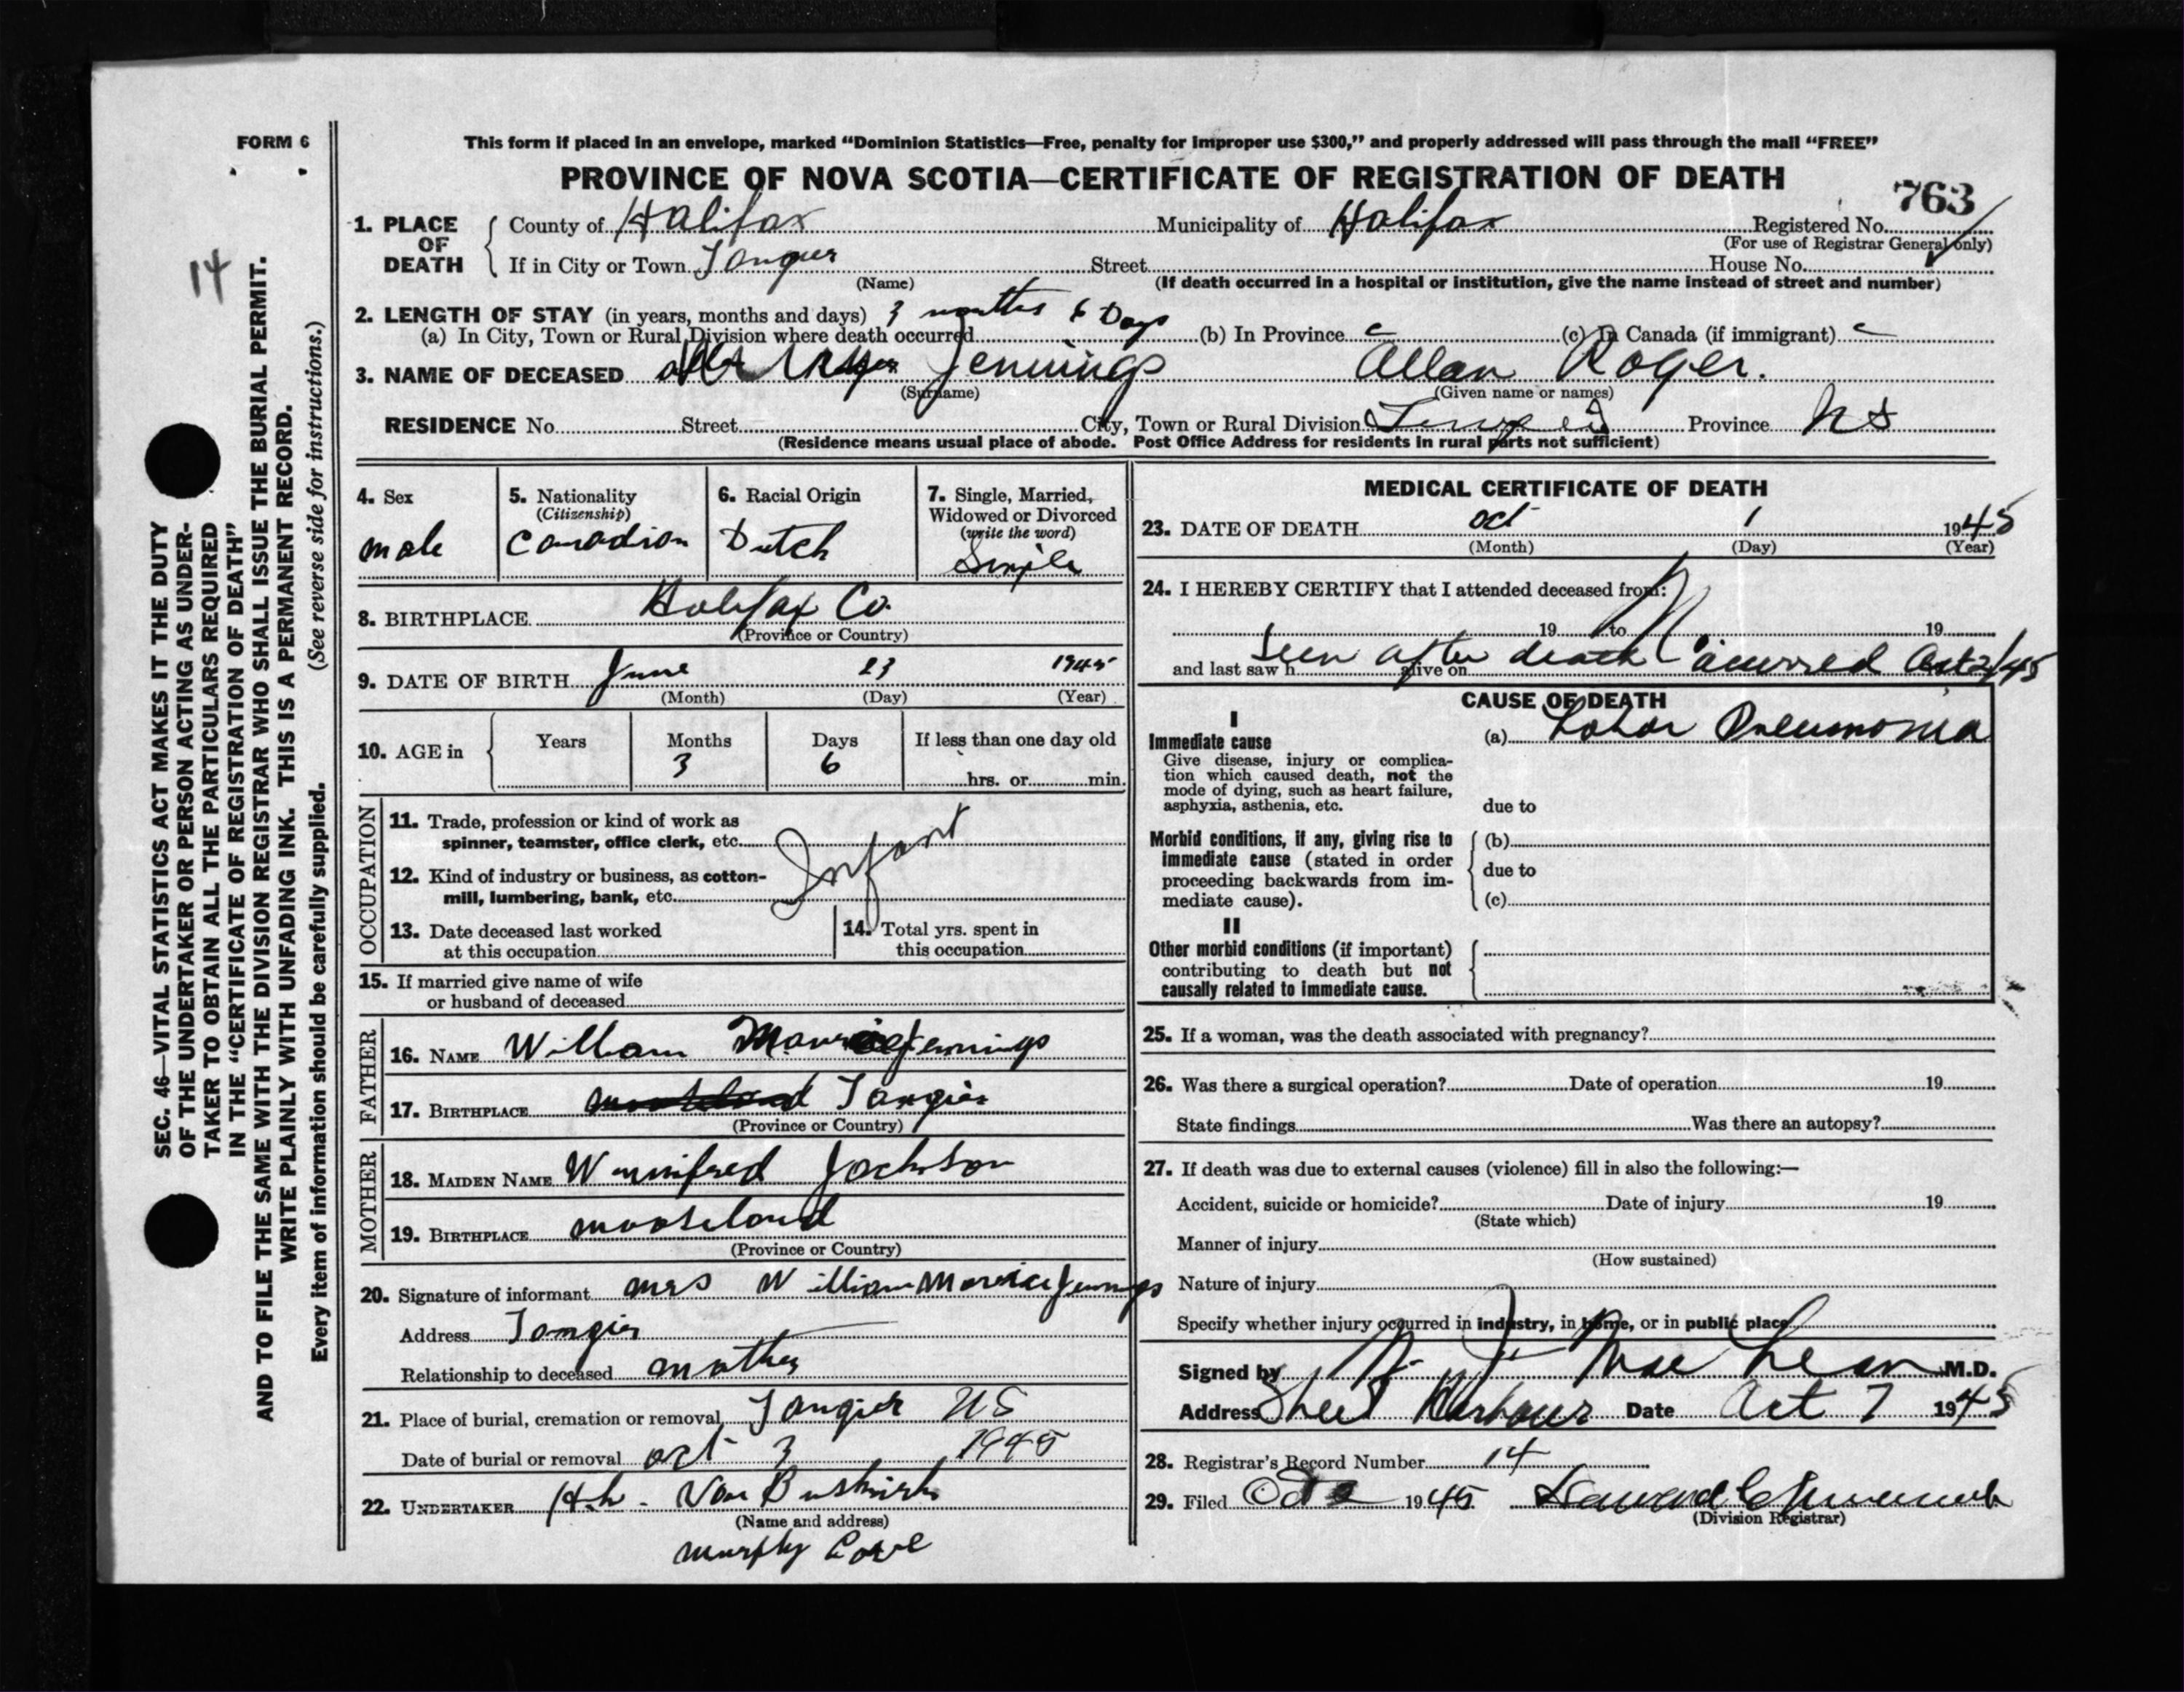 FORM 6
This form if placed in an envelope, marked “Dominion Statistics—Free, penalty for improper use $300,” and properly addressed will pass through the mail “FREE”
PROVINCE OF NOVA SCOTIA—CERTIFICATE OF REGISTRATION OF DEATH
763
14
1. PLACE OF DEATH
County of Halifax Municipality of Halifax Registered No.
(For use of Registrar General only)
If in City or Town Tangier Street House No.
(Name) (If death occurred in a hospital or institution, give the name instead of street and number)
2. LENGTH OF STAY (in years, months and days) 3 months 6 Days
(a) In City, Town or Rural Division where death occurred (b) In Province (c) In Canada (if immigrant)
3. NAME OF DECEASED Jennings Allan Roger.
(Surname) (Given name or names)
RESIDENCE No. Street City, Town or Rural Division Province NS
(Residence means usual place of abode. Post Office Address for residents in rural parts not sufficient)
4. Sex
male
5. Nationality
(Citizenship)
Canadian
6. Racial Origin
Dutch
7. Single, Married,
Widowed or Divorced
(write the word)
Single
8. BIRTHPLACE Halifax Co.
(Province or Country)
9. DATE OF BIRTH June 23 1945
(Month) (Day) (Year)
10. AGE in Years Months Days If less than one day old
3 6
hrs. or min.
OCCUPATION
11. Trade, profession or kind of work as
spinner, teamster, office clerk, etc.
Infant
12. Kind of industry or business, as cotton-
mill, lumbering, bank, etc.
13. Date deceased last worked
at this occupation
14. Total yrs. spent in
this occupation
15. If married give name of wife
or husband of deceased
FATHER
16. NAME William Jennings
17. BIRTHPLACE mooseland Tangier
(Province or Country)
MOTHER
18. MAIDEN NAME Winnifred Jackson
19. BIRTHPLACE mooseland
(Province or Country)
20. Signature of informant mrs William Jennings
Address Tangier
Relationship to deceased mother
21. Place of burial, cremation or removal Tangier NS
Date of burial or removal oct 3 1945
22. UNDERTAKER Van Buskirk
(Name and address)
murphy Cove
MEDICAL CERTIFICATE OF DEATH
23. DATE OF DEATH oct 1 1945
(Month) (Day) (Year)
24. I HEREBY CERTIFY that I attended deceased from:
19 to 19
and last saw h alive on
Seen after death occurred Oct 2/45
CAUSE OF DEATH
I
Immediate cause
Give disease, injury or complica-
tion which caused death, not the
mode of dying, such as heart failure,
asphyxia, asthenia, etc.
(a) Lobar Pneumonia
due to
Morbid conditions, if any, giving rise to
immediate cause (stated in order
proceeding backwards from im-
mediate cause).
(b)
due to
(c)
II
Other morbid conditions (if important)
contributing to death but not
causally related to immediate cause.
25. If a woman, was the death associated with pregnancy?
26. Was there a surgical operation? Date of operation 19
State findings Was there an autopsy?
27. If death was due to external causes (violence) fill in also the following:—
Accident, suicide or homicide? Date of injury 19
(State which)
Manner of injury
(How sustained)
Nature of injury
Specify whether injury occurred in industry, in home, or in public place
Signed by Mac Lean M.D.
Address Sheet Harbour Date Oct 7 1945
28. Registrar's Record Number 14
29. Filed Oct 1945
(Division Registrar)
SEC. 46—VITAL STATISTICS ACT MAKES IT THE DUTY
OF THE UNDERTAKER OR PERSON ACTING AS UNDER-
TAKER TO OBTAIN ALL THE PARTICULARS REQUIRED
IN THE “CERTIFICATE OF REGISTRATION OF DEATH”
AND TO FILE THE SAME WITH THE DIVISION REGISTRAR WHO SHALL ISSUE THE BURIAL PERMIT.
WRITE PLAINLY WITH UNFADING INK. THIS IS A PERMANENT RECORD.
Every item of information should be carefully supplied. (See reverse side for instructions.)